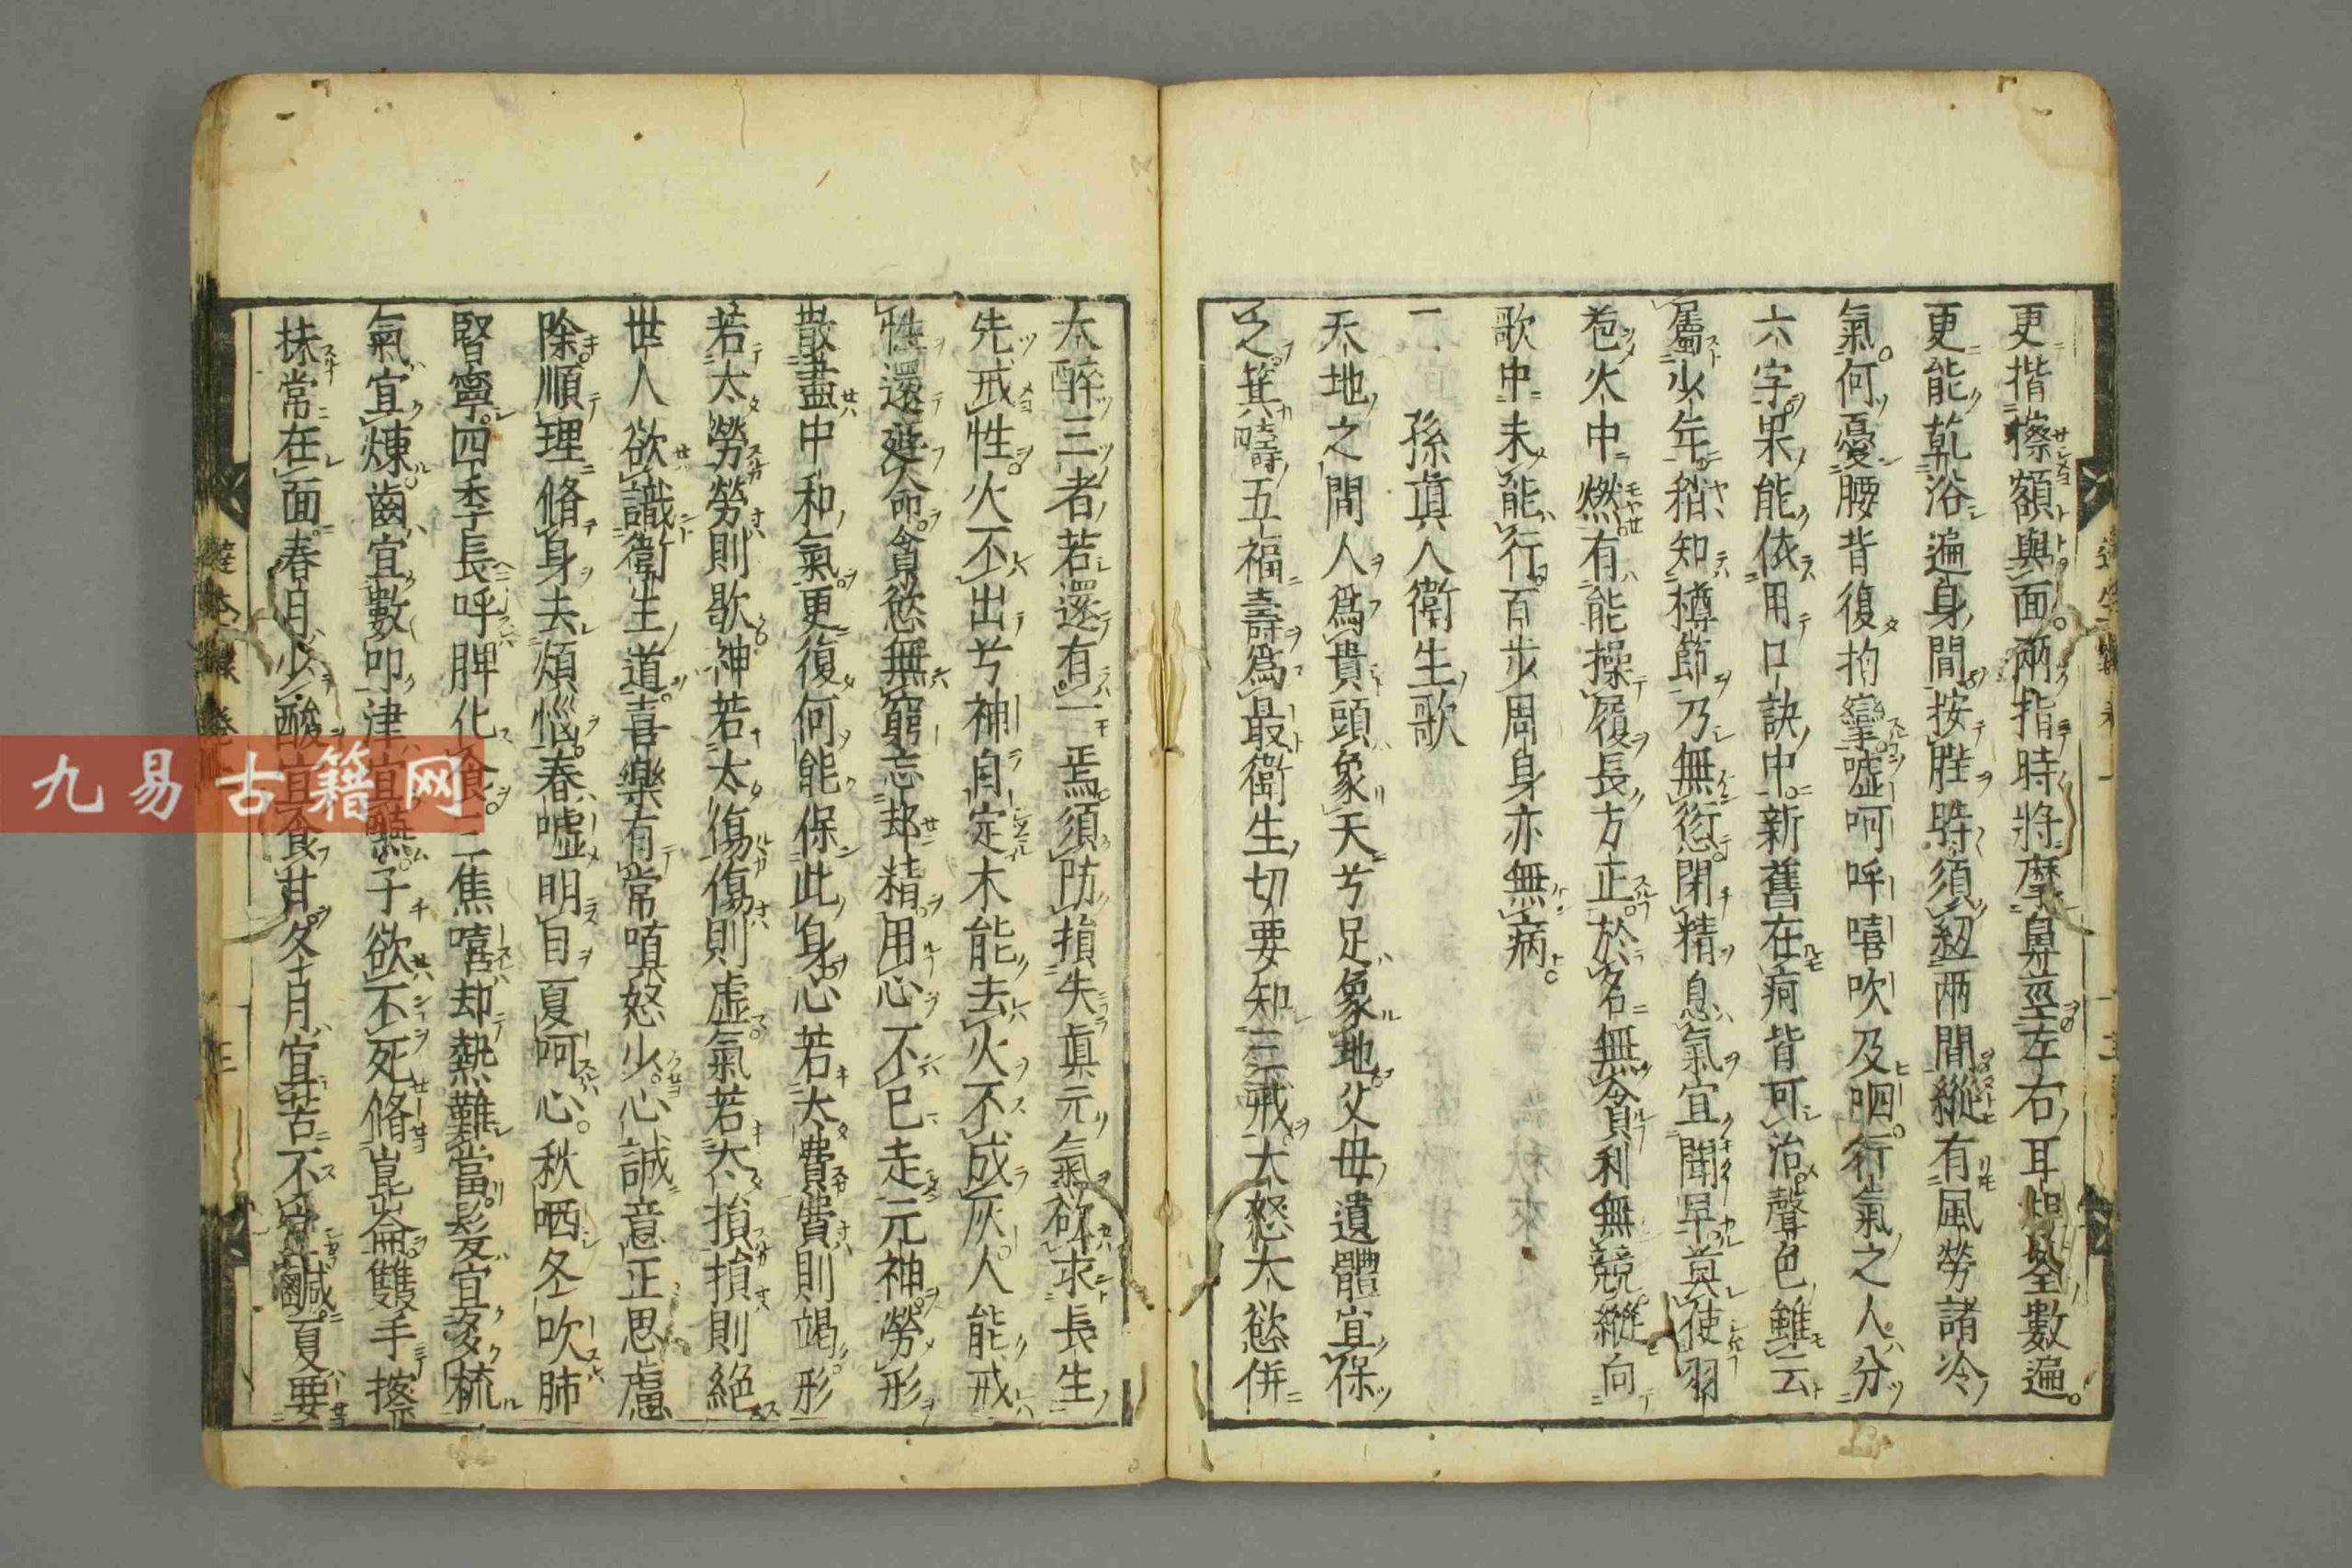 更揩擦額與面兩指時將摩鼻莖左右耳
數遍
更能乾浴遍身間按䏶時須紐兩間縱有風勞諸冷
氣何憂腰背復拘攣噓呵呼嘻吹及呬行氣之人分
六字果能依用口訣中新舊在痾皆可治聲色雖云
屬少年稍知撙節乃無愆閉精息氣宜聞早莫使羽
苞火中燃有能操履長方正於名無貪利無競縱向
歌中未能行百步周身亦無病
一孫眞人衛生歌
天地之間人爲貴頭象天兮足象地父母遺體宜保
之箕疇五福壽爲最衛生切要知三戒大怒大慾併
大醉三者若還有一焉須防損失眞元氣欲求長生
先戒性火不出兮神自定木能去火不成灰人能戒
性還延命貪慾無窮忘却精用心不已走元神勞形
散盡中和氣更復何能保此身心若太費費則竭形
若太勞勞則歇神若太傷傷則虚氣若太損損則絕
世人欲識衛生道喜樂有常嗔怒少心誠意正思慮
除順理脩身去煩惱春噓明目夏呵心秋呬冬吹肺
腎寧四季長呼脾化食三焦嘻却熱難當髮宜多梳
氣宜煉齒宜數叩津宜嚥子欲不死脩崑崙雙手擦
抹常在面春月少酸宜食甘冬月宜苦不宜鹹夏要
九易古籍网